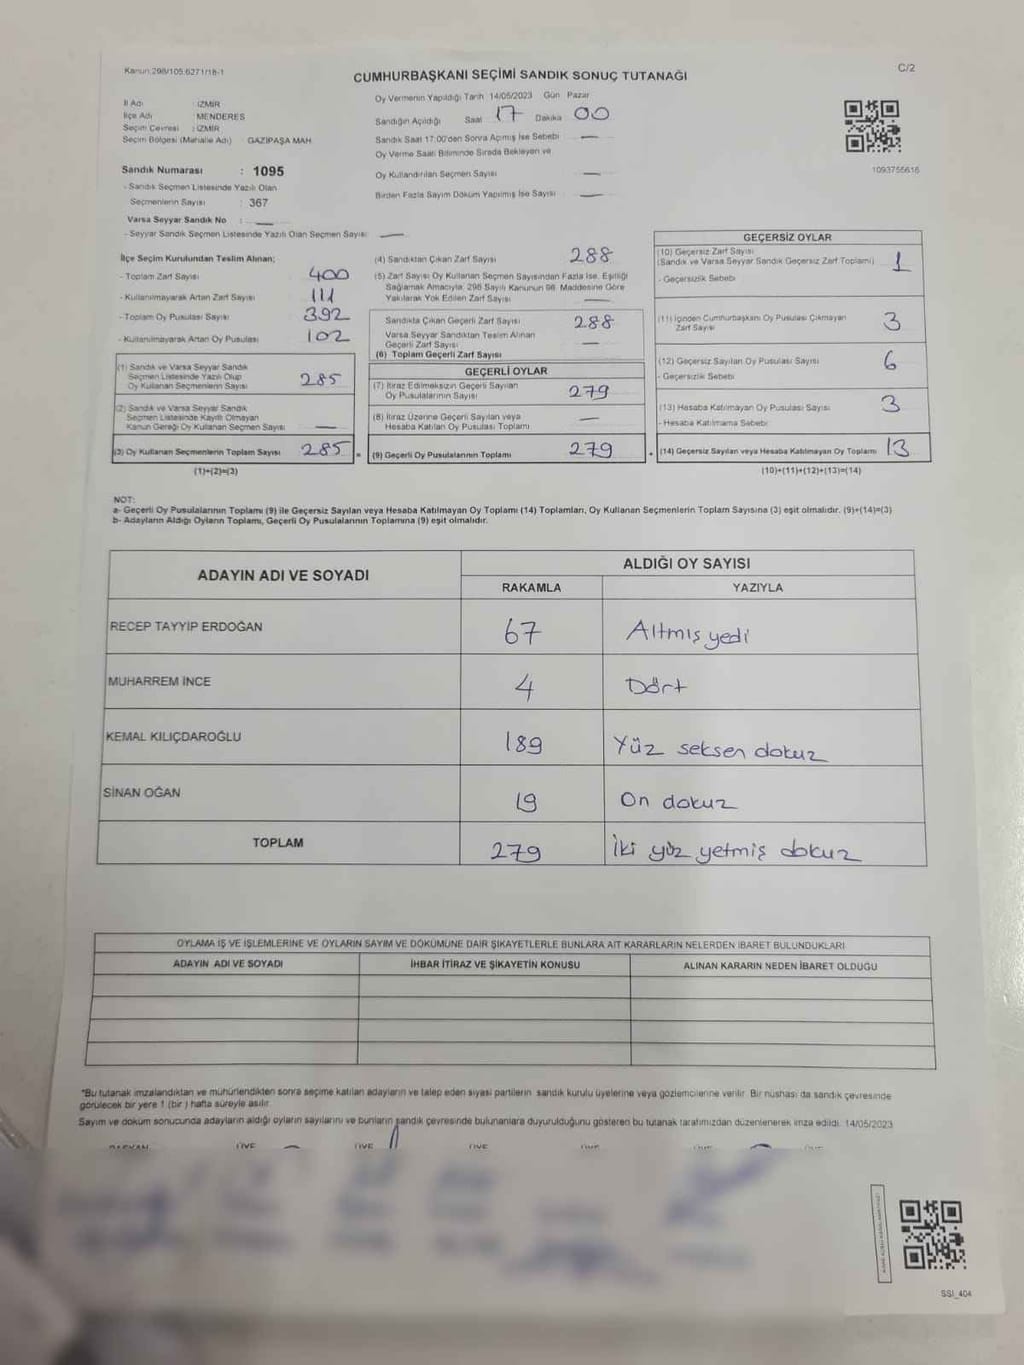 Kanun:298/105.6271/18-1
C/2
CUMHURBAŞKANI SEÇİMİ SANDIK SONUÇ TUTANAĞI
İl Adı : İZMİR
İlçe Adı : MENDERES
Seçim Çevresi : İZMİR
Seçim Bölgesi (Mahalle Adı) : GAZİPAŞA MAH
Sandık Numarası : 1095
- Sandık Seçmen Listesinde Yazılı Olan
Seçmenlerin Sayısı : 367
Varsa Seyyar Sandık No : —
- Seyyar Sandık Seçmen Listesinde Yazılı Olan Seçmen Sayısı —
Oy Vermenin Yapıldığı Tarih 14/05/2023 Gün Pazar
Sandığın Açıldığı Saat 17 Dakika 00
Sandık Saat 17:00'den Sonra Açılmış İse Sebebi —
Oy Verme Saati Bitiminde Sırada Bekleyen ve
Oy Kullandırılan Seçmen Sayısı —
Birden Fazla Sayım Döküm Yapılmış İse Sayısı —
1093755616
İlçe Seçim Kurulundan Teslim Alınan;
- Toplam Zarf Sayısı 400
- Kullanılmayarak Artan Zarf Sayısı 111
- Toplam Oy Pusulası Sayısı 392
- Kullanılmayarak Artan Oy Pusulası 102
(1) Sandık ve Varsa Seyyar Sandık
Seçmen Listesinde Yazılı Olup
Oy Kullanan Seçmenlerin Sayısı 285
(2) Sandık ve Varsa Seyyar Sandık
Seçmen Listesinde Kayıtlı Olmayan
Kanun Gereği Oy Kullanan Seçmen Sayısı —
(3) Oy Kullanan Seçmenlerin Toplam Sayısı 285 =
(1)+(2)=(3)
(4) Sandıktan Çıkan Zarf Sayısı 288
(5) Zarf Sayısı Oy Kullanan Seçmen Sayısından Fazla İse, Eşitliği
Sağlamak Amacıyla, 298 Sayılı Kanunun 98. Maddesine Göre
Yakılarak Yok Edilen Zarf Sayısı —
Sandıkta Çıkan Geçerli Zarf Sayısı 288
Varsa Seyyar Sandıktan Teslim Alınan
Geçerli Zarf Sayısı —
(6) Toplam Geçerli Zarf Sayısı
GEÇERLİ OYLAR
(7) İtiraz Edilmeksizin Geçerli Sayılan
Oy Pusulalarının Sayısı 279
(8) İtiraz Üzerine Geçerli Sayılan veya
Hesaba Katılan Oy Pusulası Toplamı —
(9) Geçerli Oy Pusulalarının Toplamı 279 +
GEÇERSİZ OYLAR
(10) Geçersiz Zarf Sayısı
(Sandık ve Varsa Seyyar Sandık Geçersiz Zarf Toplamı) 1
- Geçersizlik Sebebi
(11) İçinden Cumhurbaşkanı Oy Pusulası Çıkmayan
Zarf Sayısı 3
(12) Geçersiz Sayılan Oy Pusulası Sayısı 6
- Geçersizlik Sebebi
(13) Hesaba Katılmayan Oy Pusulası Sayısı 3
- Hesaba Katılmama Sebebi
(14) Geçersiz Sayılan veya Hesaba Katılmayan Oy Toplamı 13
(10)+(11)+(12)+(13)=(14)
NOT:
a- Geçerli Oy Pusulalarının Toplamı (9) ile Geçersiz Sayılan veya Hesaba Katılmayan Oy Toplamı (14) Toplamları, Oy Kullanan Seçmenlerin Toplam Sayısına (3) eşit olmalıdır. (9)+(14)=(3)
b- Adayların Aldığı Oyların Toplamı, Geçerli Oy Pusulalarının Toplamına (9) eşit olmalıdır.
ADAYIN ADI VE SOYADI
ALDIĞI OY SAYISI
RAKAMLA YAZIYLA
RECEP TAYYİP ERDOĞAN 67 Altmış yedi
MUHARREM İNCE 4 Dört
KEMAL KILIÇDAROĞLU 189 Yüz seksen dokuz
SİNAN OĞAN 19 On dokuz
TOPLAM 279 İki yüz yetmiş dokuz
OYLAMA İŞ VE İŞLEMLERİNE VE OYLARIN SAYIM VE DÖKÜMÜNE DAİR ŞİKAYETLERLE BUNLARA AİT KARARLARIN NELERDEN İBARET BULUNDUKLARI
ADAYIN ADI VE SOYADI İHBAR İTİRAZ VE ŞİKAYETİN KONUSU ALINAN KARARIN NEDEN İBARET OLDUĞU
*Bu tutanak imzalandıktan ve mühürlendikten sonra seçime katılan adayların ve talep eden siyasi partilerin sandık kurulu üyelerine veya gözlemcilerine verilir. Bir nüshası da sandık çevresinde
görülecek bir yere 1 (bir) hafta süreyle asılır.
Sayım ve döküm sonucunda adayların aldığı oyların sayılarını ve bunların sandık çevresinde bulunanlara duyurulduğunu gösteren bu tutanak tarafımızdan düzenlenerek imza edildi. 14/05/2023
SSI_404